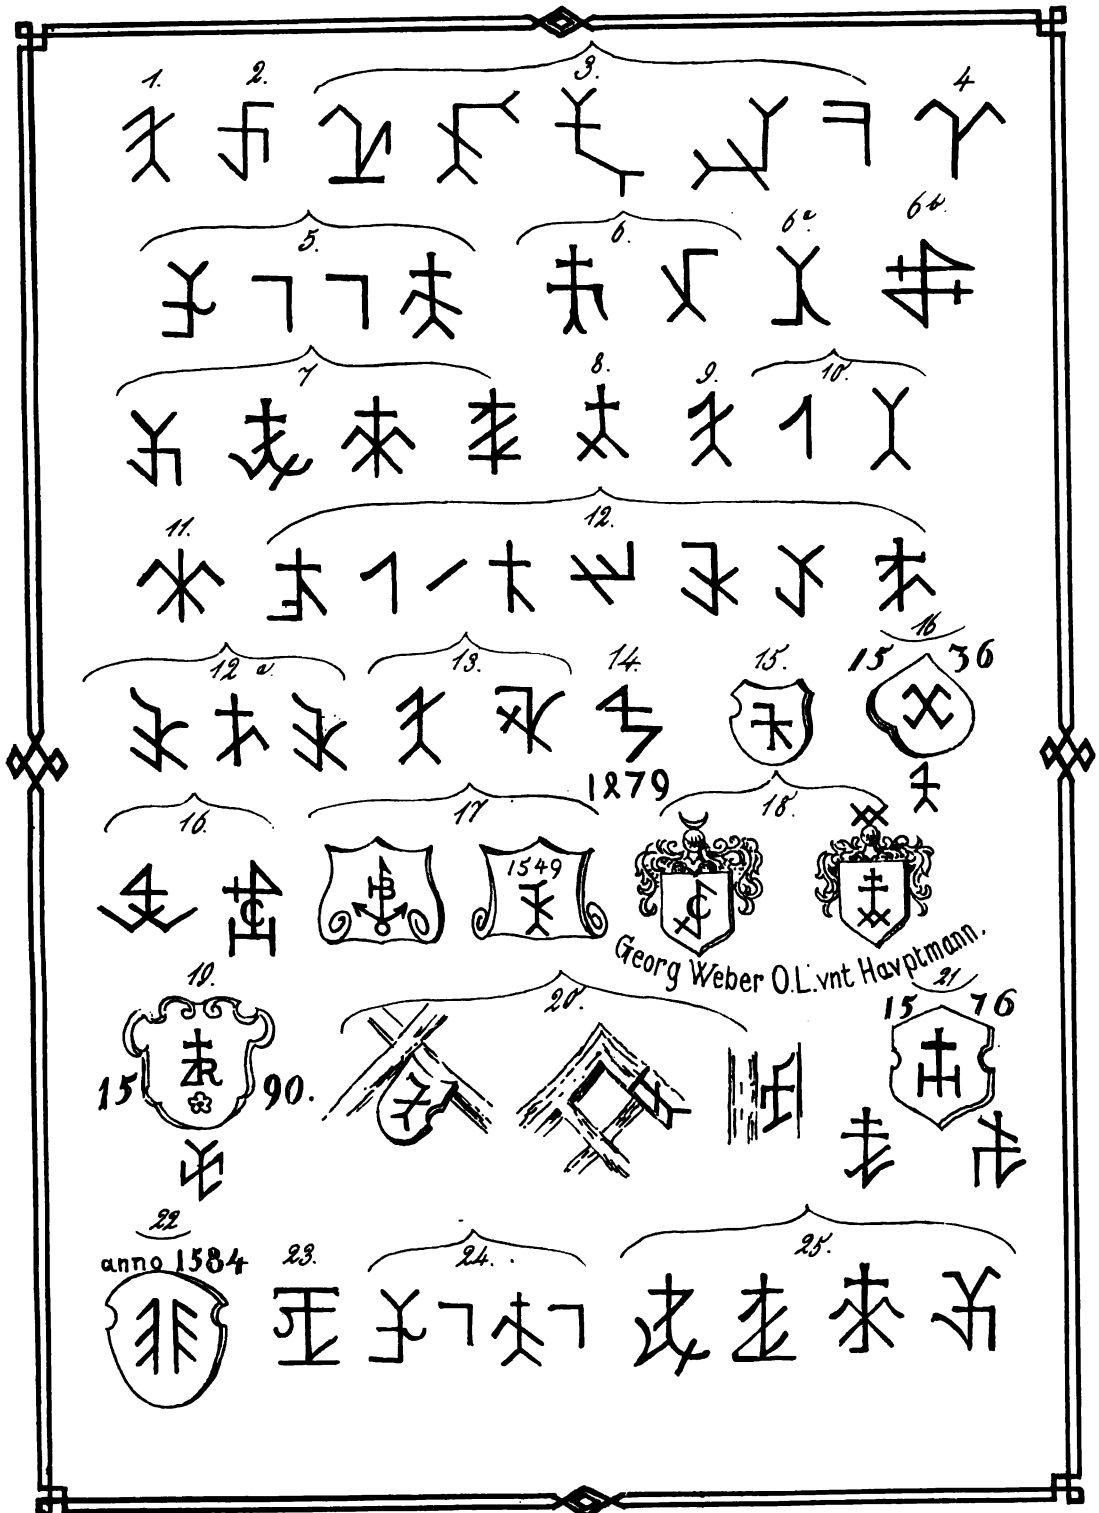 1. 2. 3. 4
5. 6. 6a 6b.
7 8. 9. 10.
11. 12.
12 a. 13. 14. 15. 16
15 36
1879
16. 17 18.
1549
HB
C
C
Georg Weber O.L.vnt Havptmann.
19. 20. 21
15 76
ZR
15 90.
22 23. 24. 25.
anno 1584